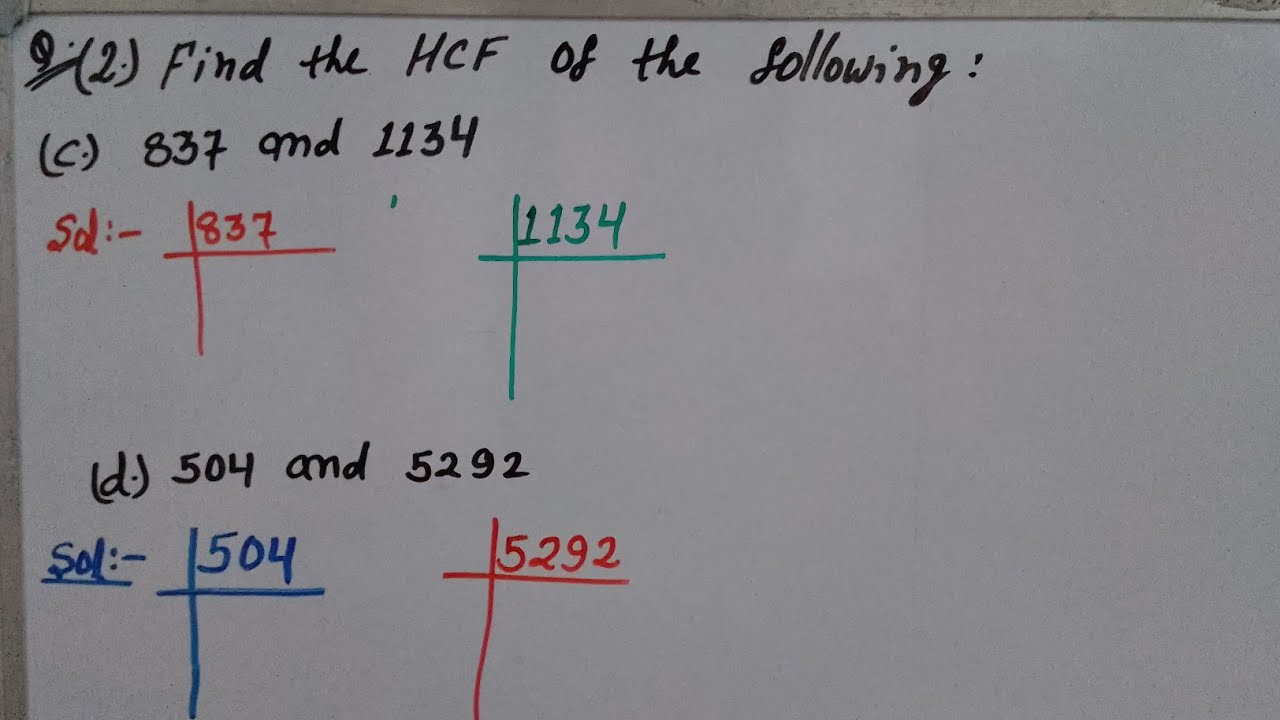 Q:(2.) Find the HCF of the following:
(c.) 837 and 1134
Sol:- 837 1134
(d.) 504 and 5292
Sol:- 504 5292